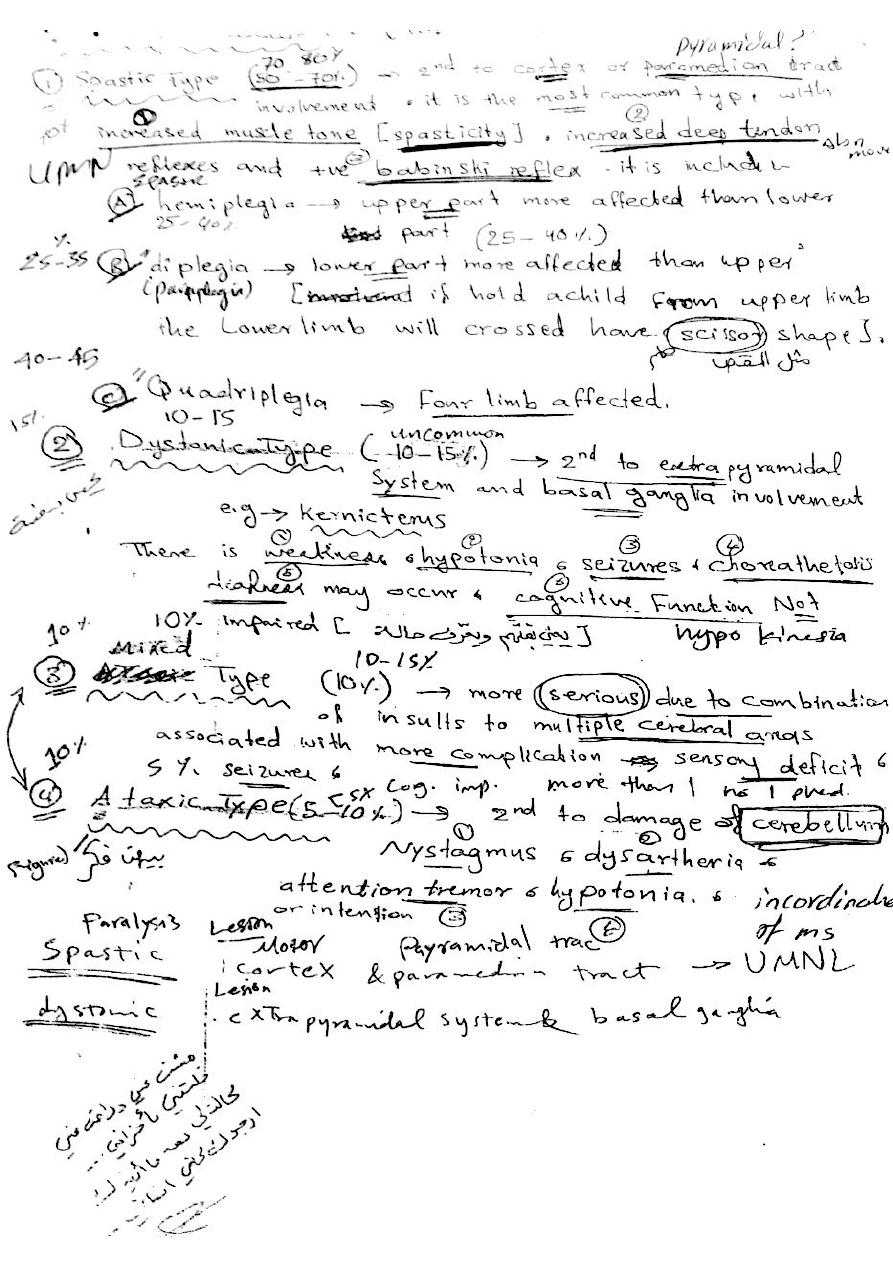 Pyramidal?
70 80%
① Spastic Type (50-70%) → 2nd to cortex or paramedian tract
involvement. it is the most common type, with
① ②
increased muscle tone [spasticity]. increased deep tendon
UMN reflexes and +ve ③ babinski reflex. it is include
spastic
Ⓐ hemiplegia → upper part more affected than lower
25-40%
part (25-40%)
%
25-35 Ⓑ diplegia → lower part more affected than upper
(paraplegia) [if hold a child from upper limb
the Lower limb will crossed have (scissor) shape].
مثل المقص
40-45
Ⓒ "Quadriplegia → Four limb affected.
15% 10-15
uncommon
② Dystonic Type (10-15%) → 2nd to extrapyramidal
System and basal ganglia involvement
e.g → Kernicterus
① ② ③ ④
There is weakness, hypotonia, seizures, choreathetosis
⑤ ⑥
may occur, cognitive Function Not
10% 10% impaired [ ] hypo kinesia
Mixed 10-15%
③ Type (10%) → more (serious) due to combination
of insults to multiple cerebral areas
associated with more complication sensory deficit,
10% 5% seizures, Cog. imp. more than 1 no 1
④ Ataxic Type (5-10%) → 2nd to damage of cerebellum
① ②
Nystagmus, dysartheria,
attention tremor, hypotonia, incordinate
or intention ③ ④ of ms
Paralysis Lesion Motor Payramidal trac
Spastic cortex & paramedian tract → UMNL
Lesion
dystonic extrapyramidal system & basal ganglia